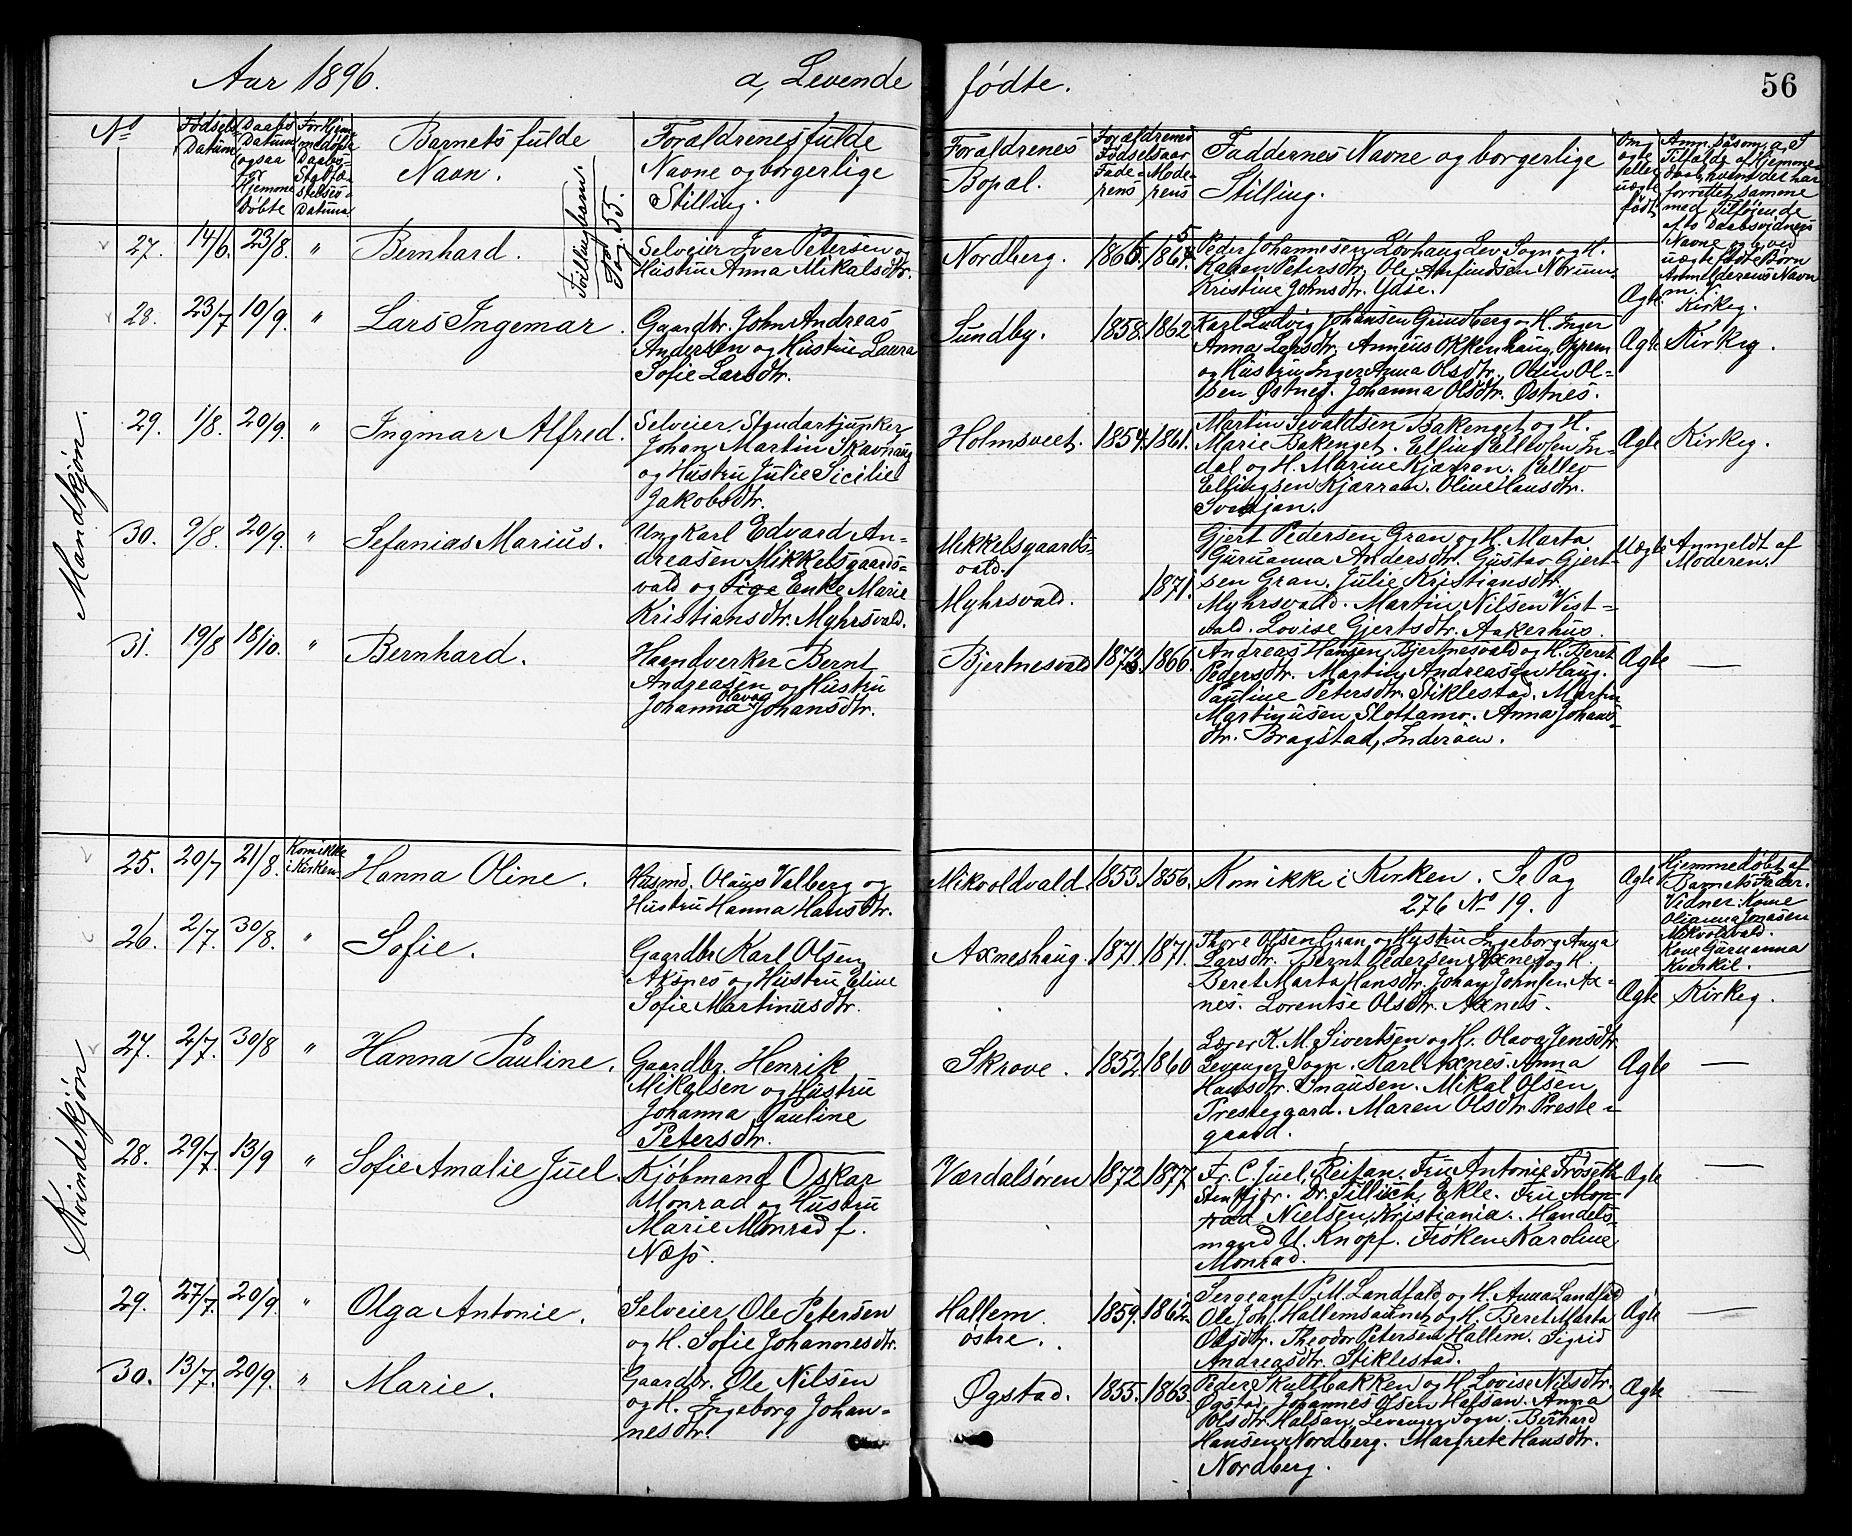 Aar 1896.
a, Levende
fødte.
56
No
Fødsels Datum
Daabs Datum ogsaa for Hjemme Døbte
For Hjemmedøbte Daabs Stadfæstelsens Datum
Barnets fulde Navn.
Forældrenes fulde Navne og borgerlige Stilling.
Forældrenes Bopæl.
Forældrenes Fødselsaar
Faderens
Moderens
Faddernes Navne og borgerlige Stilling.
Om ægte eller uægte født
Anm. såsom, a, I
Tilfælde af Hjemme
Daab, hvem det har
forrettet samme
med Tilføiende
af to Daabsvidners
Navne og b, ved
uægte fødte Børn
Anmelderens Navn
m. v.
Pag. 55.
Mandkjøn.
27. 14/6. 23/8. " Bernhard.
Selveier Iver Petersen og
Hustru Anna Mikalsdtr.
Nordberg. 1866. 1865
Peder Johannesen Lovhaug Lev. Sogn og H.
Karen Petersdtr. Ole Arnfindsen Norum.
Kristine Johnsdtr. Ydse.
Ægte Kirkeg.
28. 23/7 10/9. " Lars Ingemar.
Gaardbr. John Andreas
Andersen og Hustru Laura
Sofie Larsdtr.
Sundby. 1858. 1862.
Karl Ludvig Johansen Grindberg og H. Inger
Anna Larsdtr. Anneus Okkenhaug, Opem
og Hustru Inger Anna Olsdtr. Odin Ol=
sen Østnes. Johanna Olsdtr. Østnes.
Ægte Kirkeg.
29. 1/8. 20/9. " Ingmar Alfred.
Selveier, Standartjunker
Johan Martin Skavhaug
og Hustru Julie Sicilie
Jakobsdtr.
Holmsveet. 1854. 1861.
Martin Sevaldsen Bakenget og H.
Marie Bakenget. Elling Ellevsen In=
dal og H. Marine Kjærran. Ellev
Ellingsen Kjærran. Oline Hansdtr.
Svedjan.
Ægte Kirkeg.
30. 9/8. 20/9. " Sefanias Marius.
Ungkarl Edvard An=
dreasen Mikkelsgaards=
vald og Pige Enke Marie
Kristiansdtr. Myhrsvald.
Mikkelsgaards=
vald.
Myhrsvald. 1871.
Gjert Pedersen Gran og H. Marta
Guruanna Andersdtr. Gustav Gjert=
sen Gran. Julie Kristiansdtr.
Myhrsvald. Martin Nilsen Vist=
vald. Lovise Gjertsdtr. Aakerhus.
Uægte Anmeldt af
Moderen.
31. 19/8 18/10. " Bernhard.
Haandverker Bernt
Andreasen og Hustru
Johanna Olava Johansdtr.
Bjertnesvald 1873. 1866.
Andreas Hansen Bjertnesvald og H. Beret
Pedersdtr. Martin Andreasen Haug.
Pauline Petersdtr. Stiklestad. Martin
Martinusen Slottamo. Anna Johans=
dtr. Bragstad, Inderøen.
Ægte —
Kvindekjøn
25. 20/7 21/8. Kom ikke
i Kirken. Hanna Oline.
Husmd. Olaus Valberg og
Hustru Hanna Hansdtr.
Mikvoldvald. 1853. 1856.
Kom ikke i Kirken. Se Pag
276 No 19.
Ægte
Hjemmedøbt af
Barnets Fader.
Vidner: Kone
Olianna Jonasen
Mikvolsvald.
Kone Guruanna
Kverkil.
26. 2/7. 30/8. " Sofie.
Gaardbr. Karl Olsen
Aksnes og Hustru Eline
Sofie Martinusdtr.
Axneshaug. 1871. 1871.
Thore Olsen Gran og Hustru Ingeborg Anna
Larsdtr. Bernt Pedersen Axnes og H.
Beret Marta Hansdtr. Johan Johnsen Ax=
nes. Lorentse Olsdtr. Axnes.
Ægte Kirkeg.
27. 2/7. 30/8 " Hanna Pauline.
Gaardbr. Henrik
Mikalsen og Hustru
Johanna Pauline
Petersdtr.
Skrove. 1852. 1860
Lærer K. M. Sivertsen og H. Olava Jensdtr.
Levanger Sogn. Karl Axnes. Anna
Hansdtr. Snausen. Mikal Olsen
Presteggaard. Maren Olsdtr. Preste=
gaard.
Ægte —
28. 29/7. 13/9 " Sofie Amalie Juel.
Kjøbmand Oskar
Monrad og Hustru
Marie Monrad f.
Næss.
Værdalsøren 1872. 1877
Fr. C. Juel, Reitan, Fru Antonie Frøseth
Stenkjær. Dr. Tillisch, Ekle. Fru Mon=
rad Nielsen, Kristiania. Handels=
mand U. Knopf. Frøken Karoline
Monrad.
Ægte —
29. 27/7. 20/9. " Olga Antonie.
Selveier Ole Petersen
og H. Sofie Johannesdtr.
Hallem
østre. 1859. 1862.
Sergeant P. M. Landfald og H. Anna Landfald
Ole Joh. Hallemsaunet og H. Beret Marta
Olsdtr. Theodor Petersen Hallem. Sigrid
Andreasdtr. Stiklestad.
Ægte —
30. 13/7. 20/9. " Marie.
Gaardbr. Ole Nilsen
og H. Ingeborg Johan=
nesdtr.
Øgstad. 1855. 1863.
Peder Skultbakken og H. Lovise Nilsdtr.
Øgstad. Johannes Olsen Halsan. Anna
Olsdtr. Halsan, Levanger Sogn. Bernhard
Hansen Nordberg. Marfrete Hansdtr.
Nordberg.
Ægte —